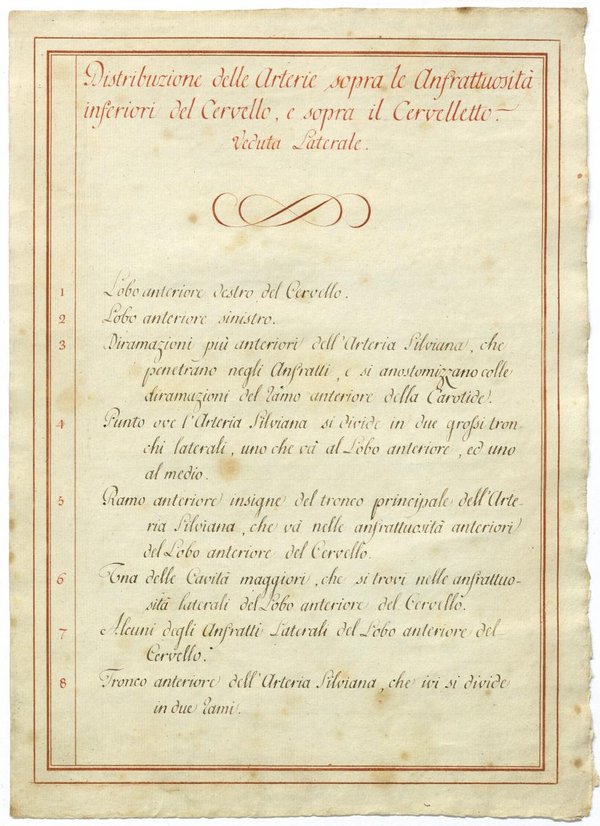 Distribuzione delle Arterie sopra le Anfrattuosità
inferiori del Cervello, e sopra il Cervelletto.
Veduta Laterale.
1 Lobo anteriore destro del Cervello.
2 Lobo anteriore sinistro.
3 Diramazioni più anteriori dell'Arteria Silviana, che
penetrano negli Anfratti, e si anostomizzano colle
diramazioni del Ramo anteriore della Carotide.
4 Punto ove l'Arteria Silviana si divide in due grossi tron-
chi laterali, uno che và al Lobo anteriore, ed uno
al medio.
5 Ramo anteriore insigne del tronco principale dell'Arte-
ria Silviana, che và nelle anfrattuosità anteriori
del Lobo anteriore del Cervello.
6 Una delle Cavità maggiori, che si trovi nelle anfrattuo-
sità laterali del Lobo anteriore del Cervello.
7 Alcuni degli Anfratti Laterali del Lobo anteriore del
Cervello.
8 Tronco anteriore dell'Arteria Silviana, che ivi si divide
in due Rami.